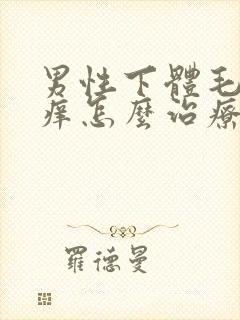 男性下體毛
痒怎麼治療
羅德曼